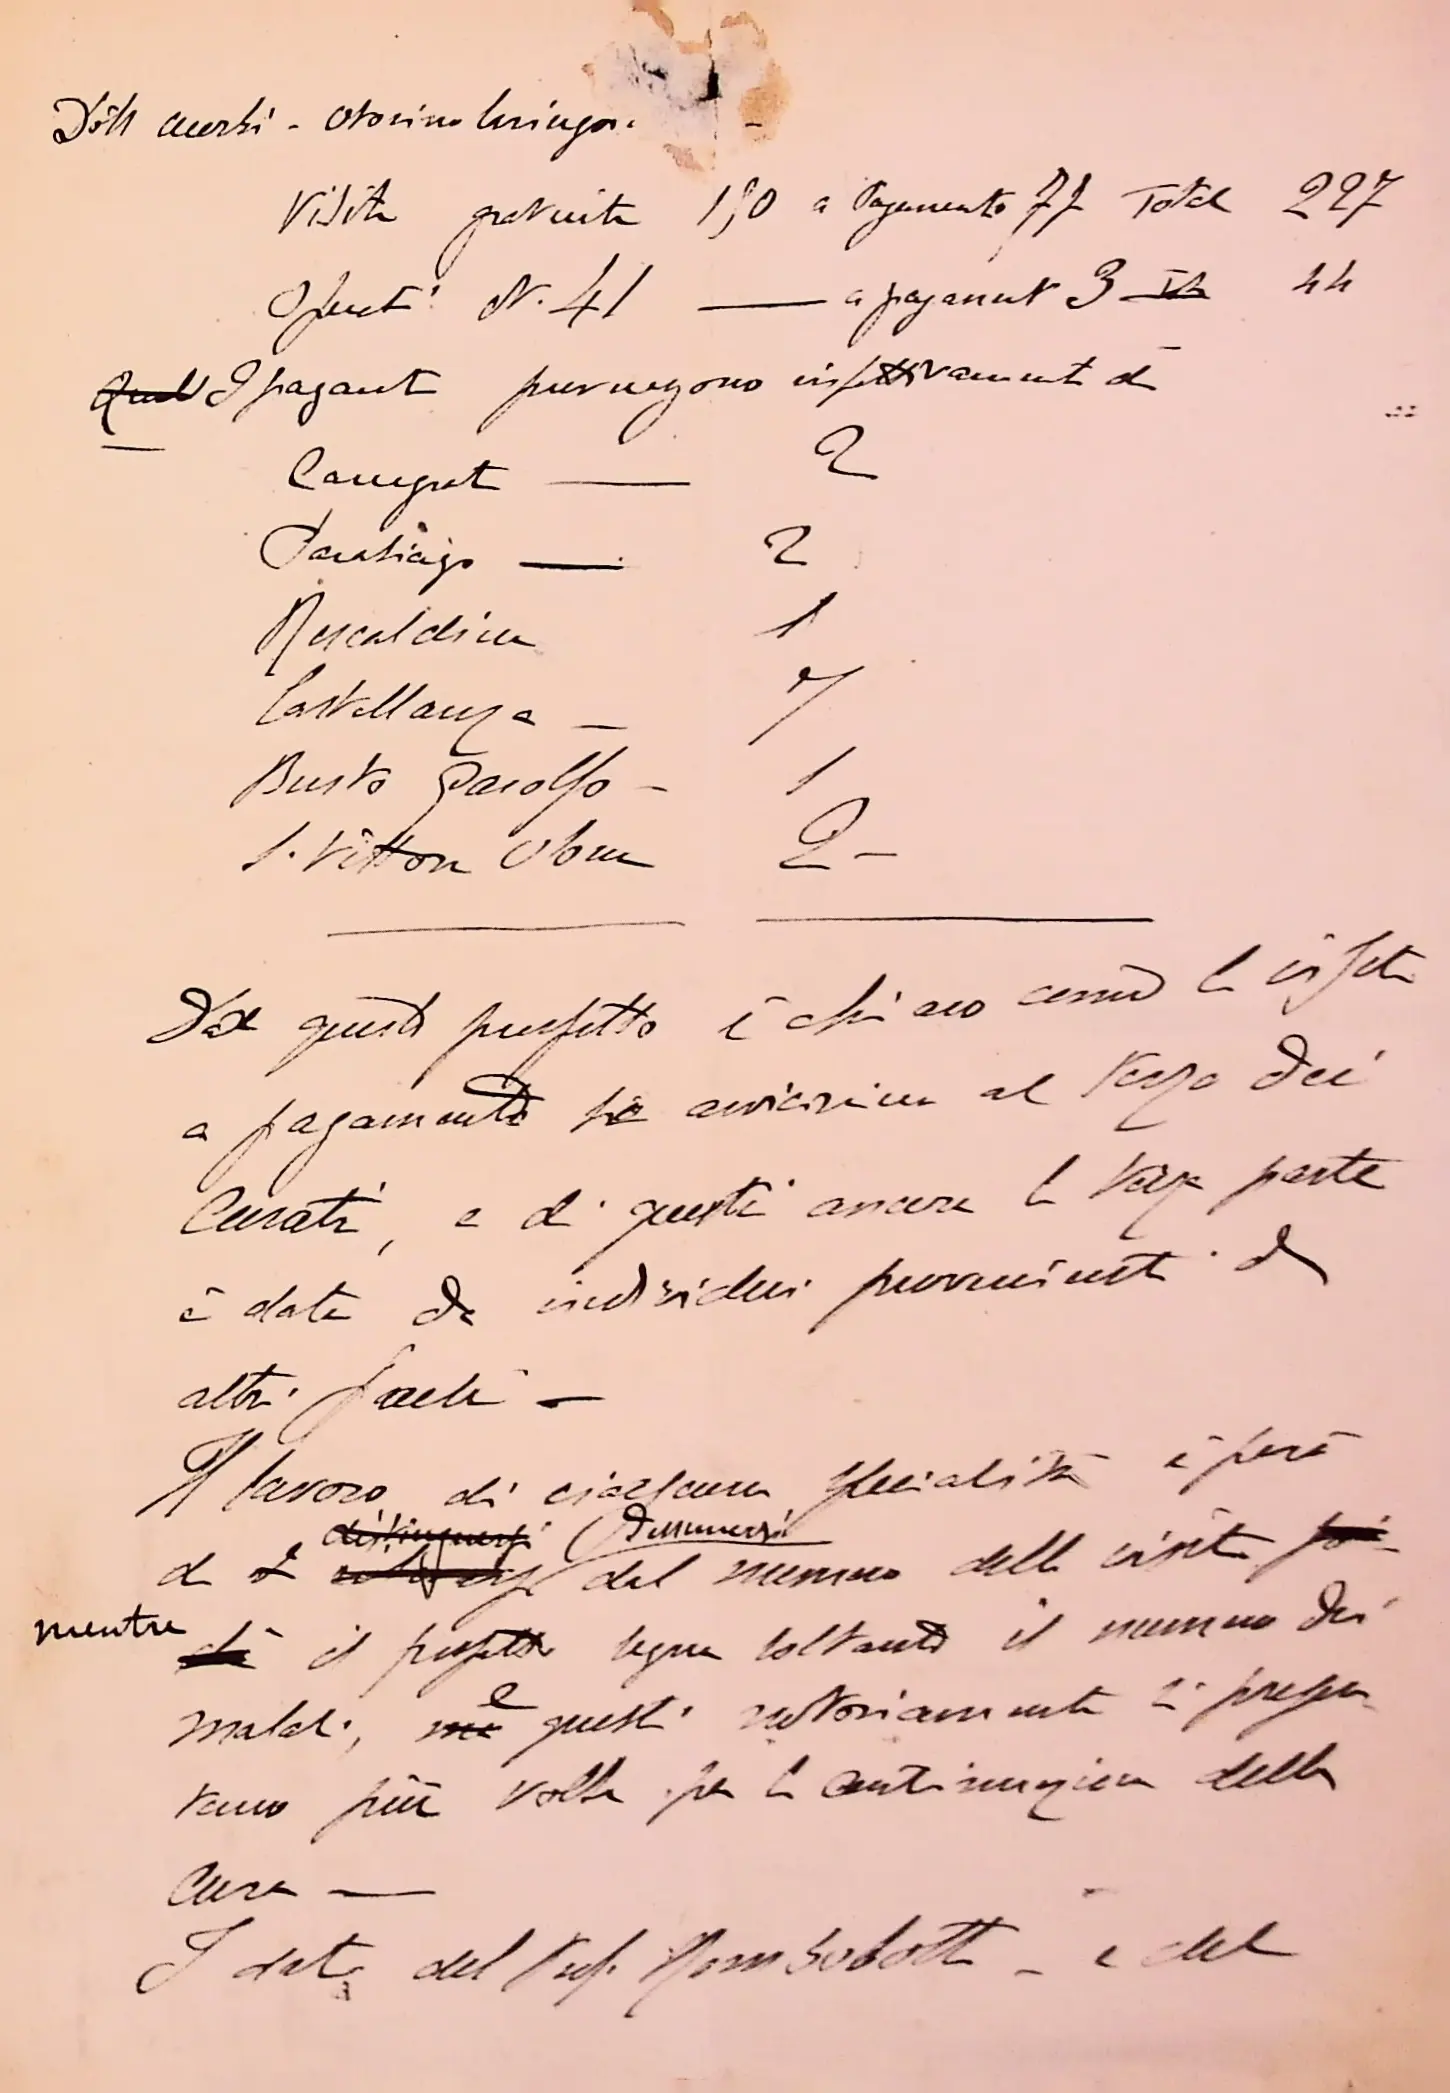 Dott. - Otorinolaringo.
Visite gratuite 150 a Pagamento 77 Total 227
Operat: N. 41 — a pagament 3 44
I paganti provengono rispettivamente da
Canegrat — 2
Parabiago — 2
Rescaldina 1
Castellanza — 7
Busto Garolfo — 1
S. Vittore Olona 2 —
Dal questo prospetto è chiaro come le visite
a pagamento si avvicinino al terzo dei
Curati, e di questi ancora la terza parte
è data da individui provenienti da
altri paesi —
Il lavoro di ciascuna specialità è però
da desumersi dal numero delle visite
mentre il prospetto segna soltanto il numero dei
malati, e questi notoriamente si presen
tano più volte per la continuazione della
cura —
I dati del Prof. Rombolotti — e del